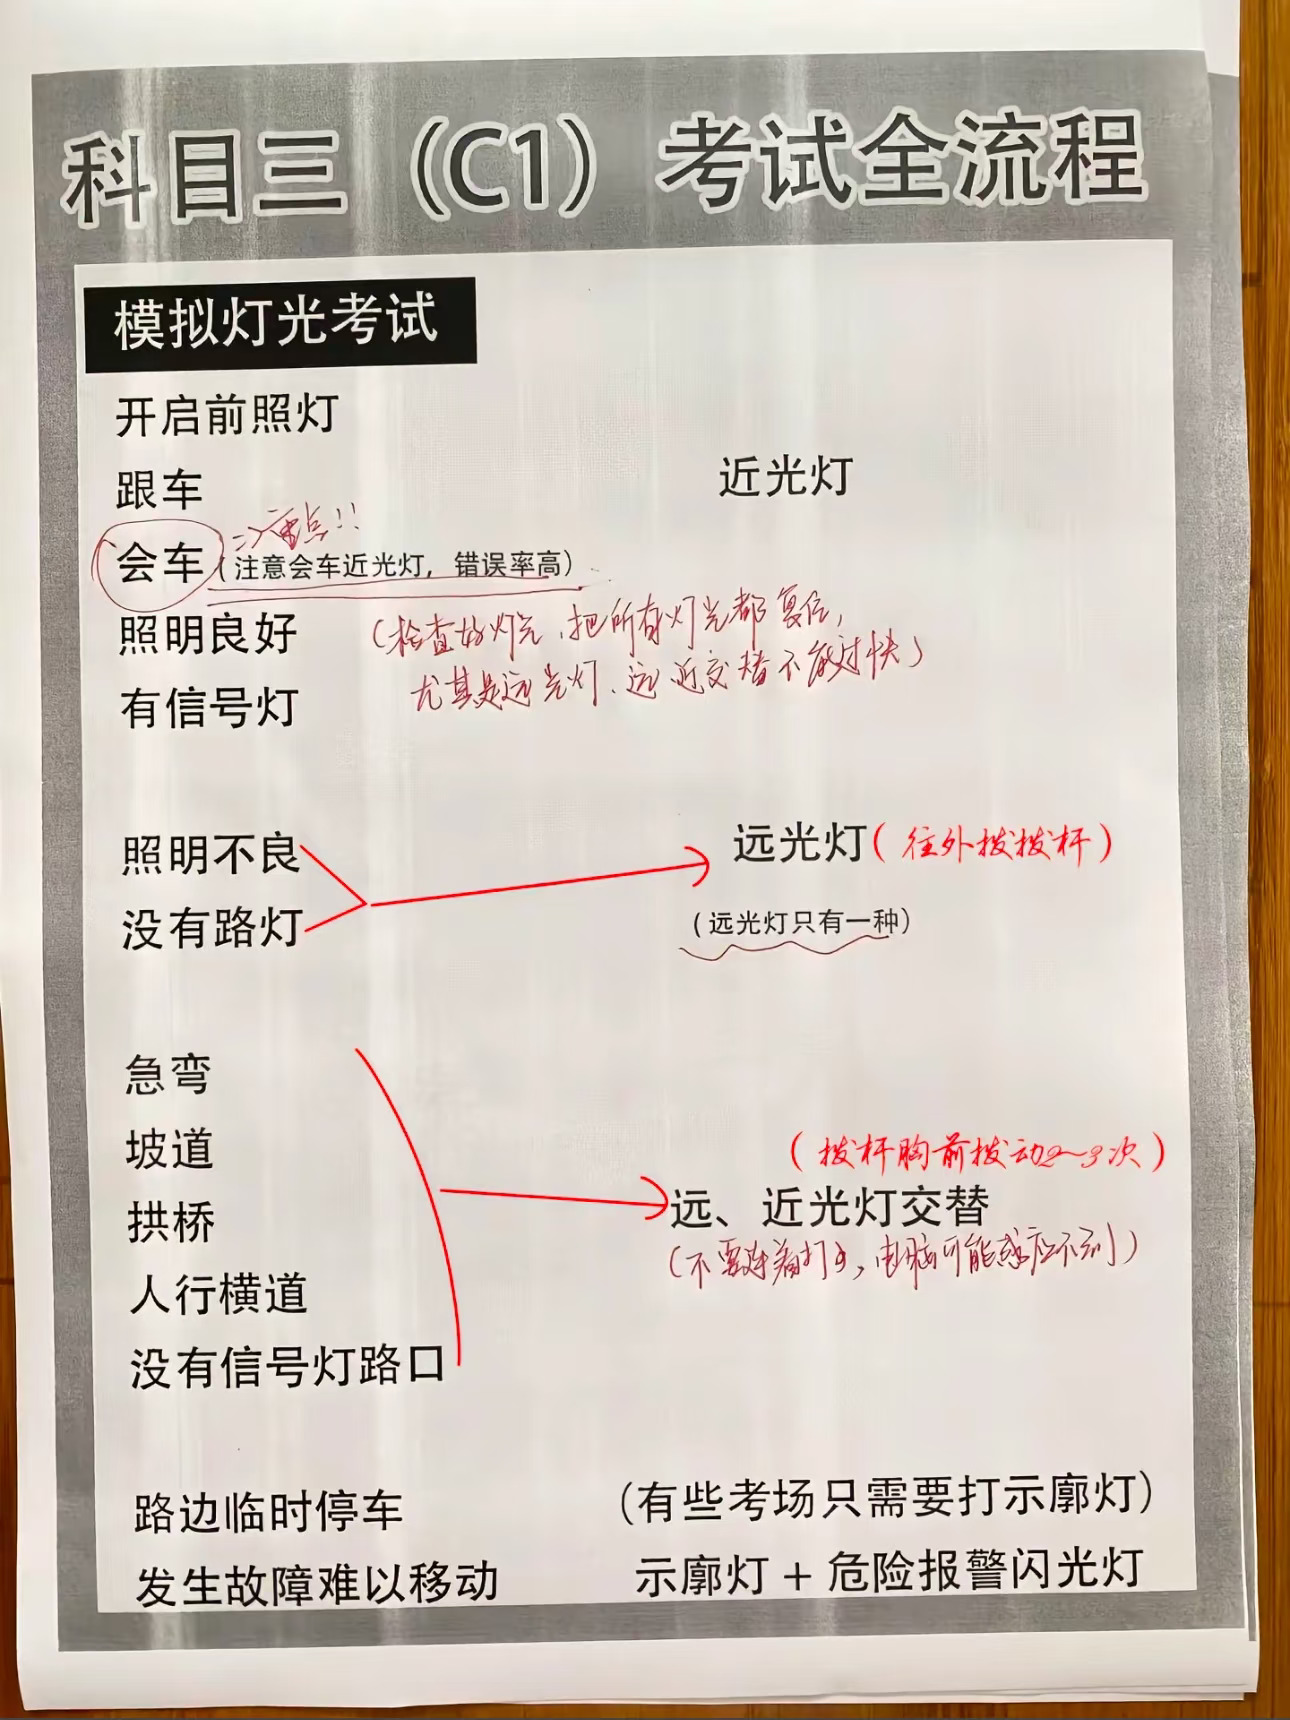 科目三（C1）考试全流程
模拟灯光考试
开启前照灯
跟车
近光灯
=>重点!!
会车（注意会车近光灯，错误率高）
照明良好
（检查好灯光，把所有灯光都复位，
尤其是远光灯、远近交替不能过快）
有信号灯
照明不良
远光灯（往外拨拨杆）
没有路灯
（远光灯只有一种）
急弯
坡道
（拨杆胸前拨动2~3次）
拱桥
远、近光灯交替
（不要连着打，电脑可能感应不到）
人行横道
没有信号灯路口
路边临时停车
（有些考场只需要打示廓灯）
发生故障难以移动
示廓灯 + 危险报警闪光灯